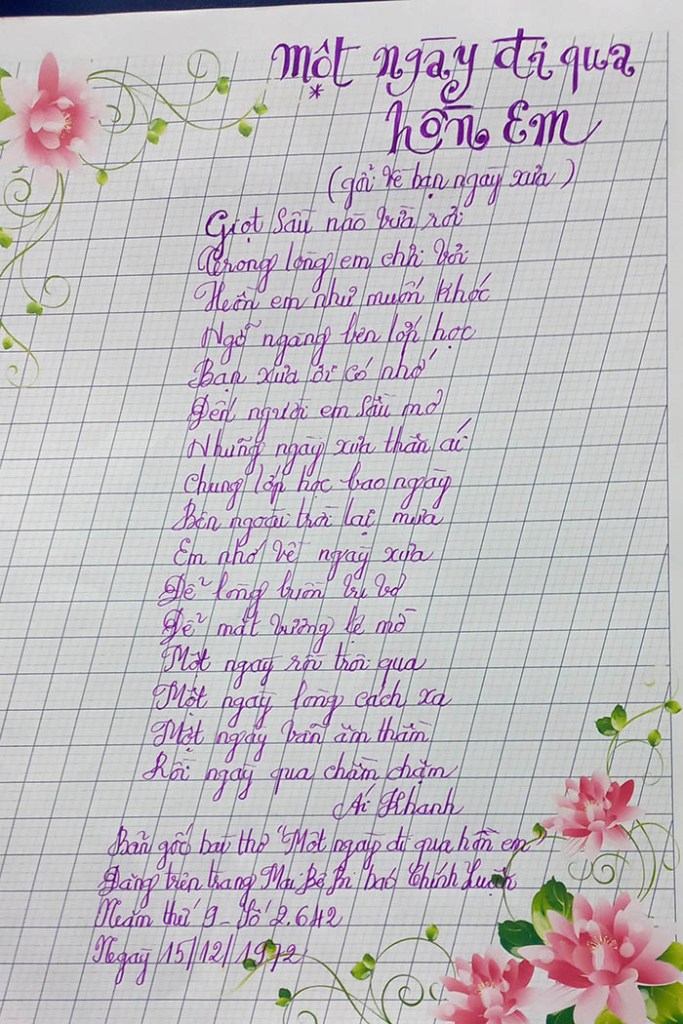 Một ngày đi qua
hồn Em
(gởi về bạn ngày xưa)
Giọt sầu nào vừa rơi
Trong lòng em chơi vơi
Hồn em như muốn khóc
Ngỡ ngàng bên lớp học
Bạn xưa ơi có nhớ
Đến người em sầu mơ
Những ngày xưa thân ái
Chung lớp học bao ngày
Bên ngoài trời lại mưa
Em nhớ về ngày xưa
Để lòng buồn vu vơ
Để mắt vương lệ mờ
Một ngày rồi trôi qua
Một ngày lòng cách xa
Một ngày vẫn âm thầm
Rồi ngày qua chầm chậm
Ái Khanh
Bản gốc bài thơ "Một ngày đi qua hồn em"
Đăng trên trang Mai Bê Bi báo Chính Luận
Năm thứ 9 - Số 2.642
Ngày 15/12/1972